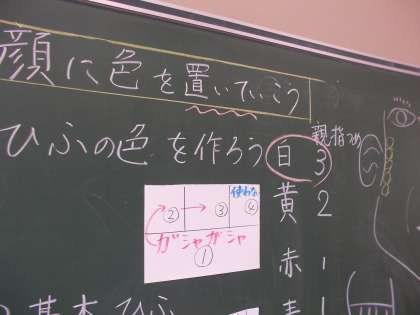 顔に色を置いていこう
ひふの色を作ろう
親指つめ
白 3
黄 2
赤 1
青 1
② → ③ 使わない ④
ガシャガシャ
①
基本ひふ